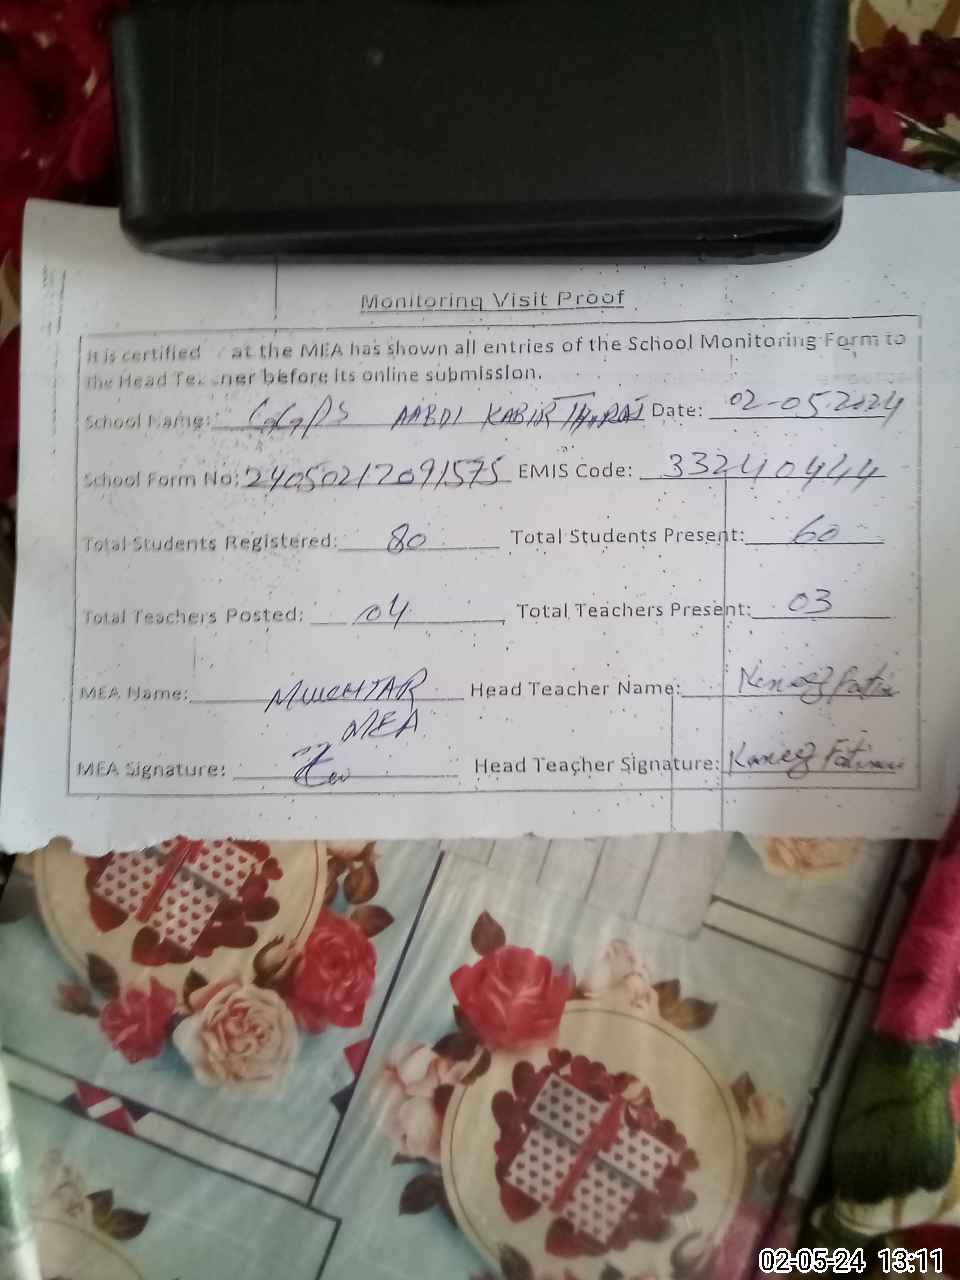 Monitoring Visit Proof
It is certified at the MEA has shown all entries of the School Monitoring Form to
the Head Teacher before its online submission.
School Name: GGPS AABDI KABIR THIRAJ Date: 02-05-2024
School Form No: 24050217091575 EMIS Code: 33240444
Total Students Registered: 80 Total Students Present: 60
Total Teachers Posted: 04 Total Teachers Present: 03
MEA Name: MUCHTAR Head Teacher Name: Fatima
MEA
MEA Signature: Head Teacher Signature: Kaneez Fatima
02-05-24 13:11